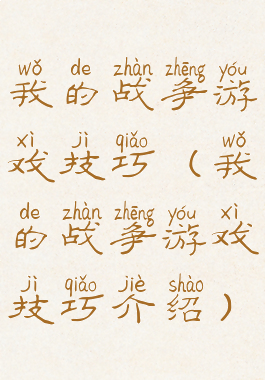 wǒ de zhàn zhēng yóu
我的战争游
xì jì qiǎo wǒ
戏技巧（我
de zhàn zhēng yóu xì
的战争游戏
jì qiǎo jiè shào
技巧介绍）